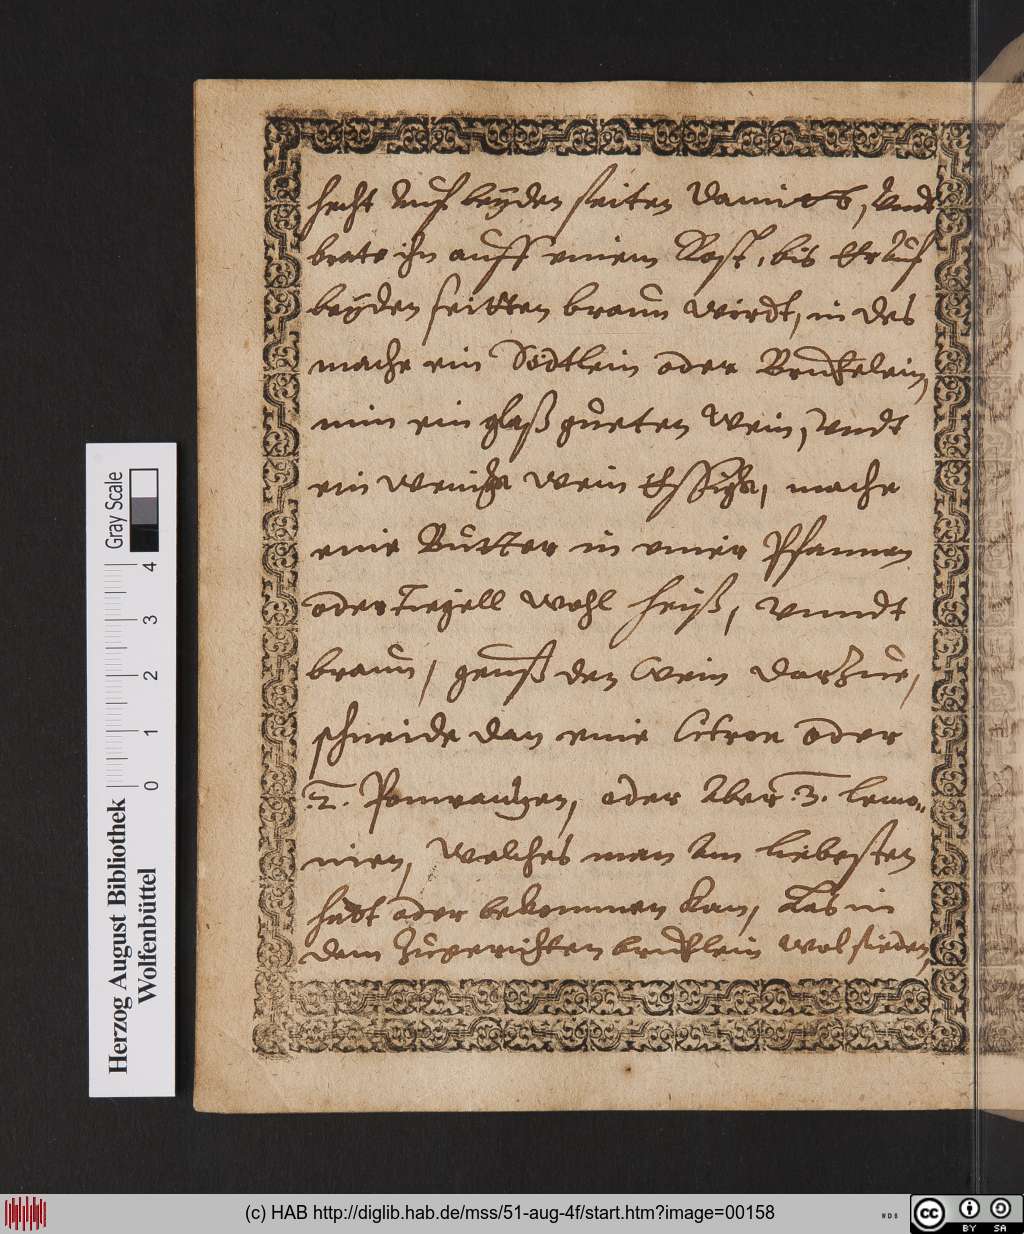 hecht auf beyden seiten damitt, vndt
brate ihn auff einem Rost, bis Er auf
beyden seitten braun wirdt, in des
mache ein Södtlein oder Brüchelein,
nim ein glaß gueten Wein, vndt
ein wenich wein Essich, mache
eine Butter in einer Pfannen
oder Tiegell wohl heiß, vnndt
braun, geuß den Wein darzue,
schneide dan eine Citron oder
.2. Pomrantzen, oder aber .3. lemo„
nien, welches man am liebesten
hatt oder bekommen kan, Las in
dem zugerichten brüchlein wol sieden,
Gray Scale
4
3
2
1
0
Herzog August Bibliothek
Wolfenbüttel
(c) HAB http://diglib.hab.de/mss/51-aug-4f/start.htm?image=00158
WDB
cc BY SA